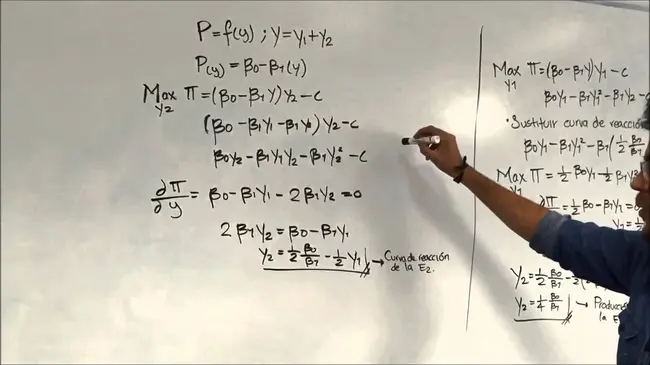 P=f(y) ; y=y₁+y₂
P(y) = β0-β1(y)
Max y2 π=(β0-β1y)y₂-c
(β0-β1y₁-β1y₂)y₂-c
β0y₂-β1y₁y₂-β1y₂²-c
∂π/∂y = β0-β1y₁-2β1y₂=0
2β1y₂=β0-β1y₁
y₂=½ β0/β1 - ½ y₁ → Curva de reacción
de la E₂.
Max y1 π=(β0-β1y)y₁-c
β0y₁-β1y₁²-β1y₂
• Sustituir curva de reacció
β0y₁-β1y₁²-β1(½ β0/β1
Max y1 π=½β0y₁-½β1y₁²
∂π/∂y₁=½β0-β1y₁=0
y₁=½
y₂=½ β0/β1 - ½(
y₂=¼ β0/β1 → Producció
la E